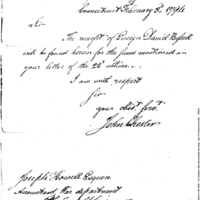 Connecticut February 8th 1794
Sir
The receipt of Ensign Daniel Bissell
will be found herein for the sums mentioned in
your letter of the 22d ultimo.
I am with respect
Sir
your obedt servt
John Chester
Joseph Howell Esquire
Accountant War department